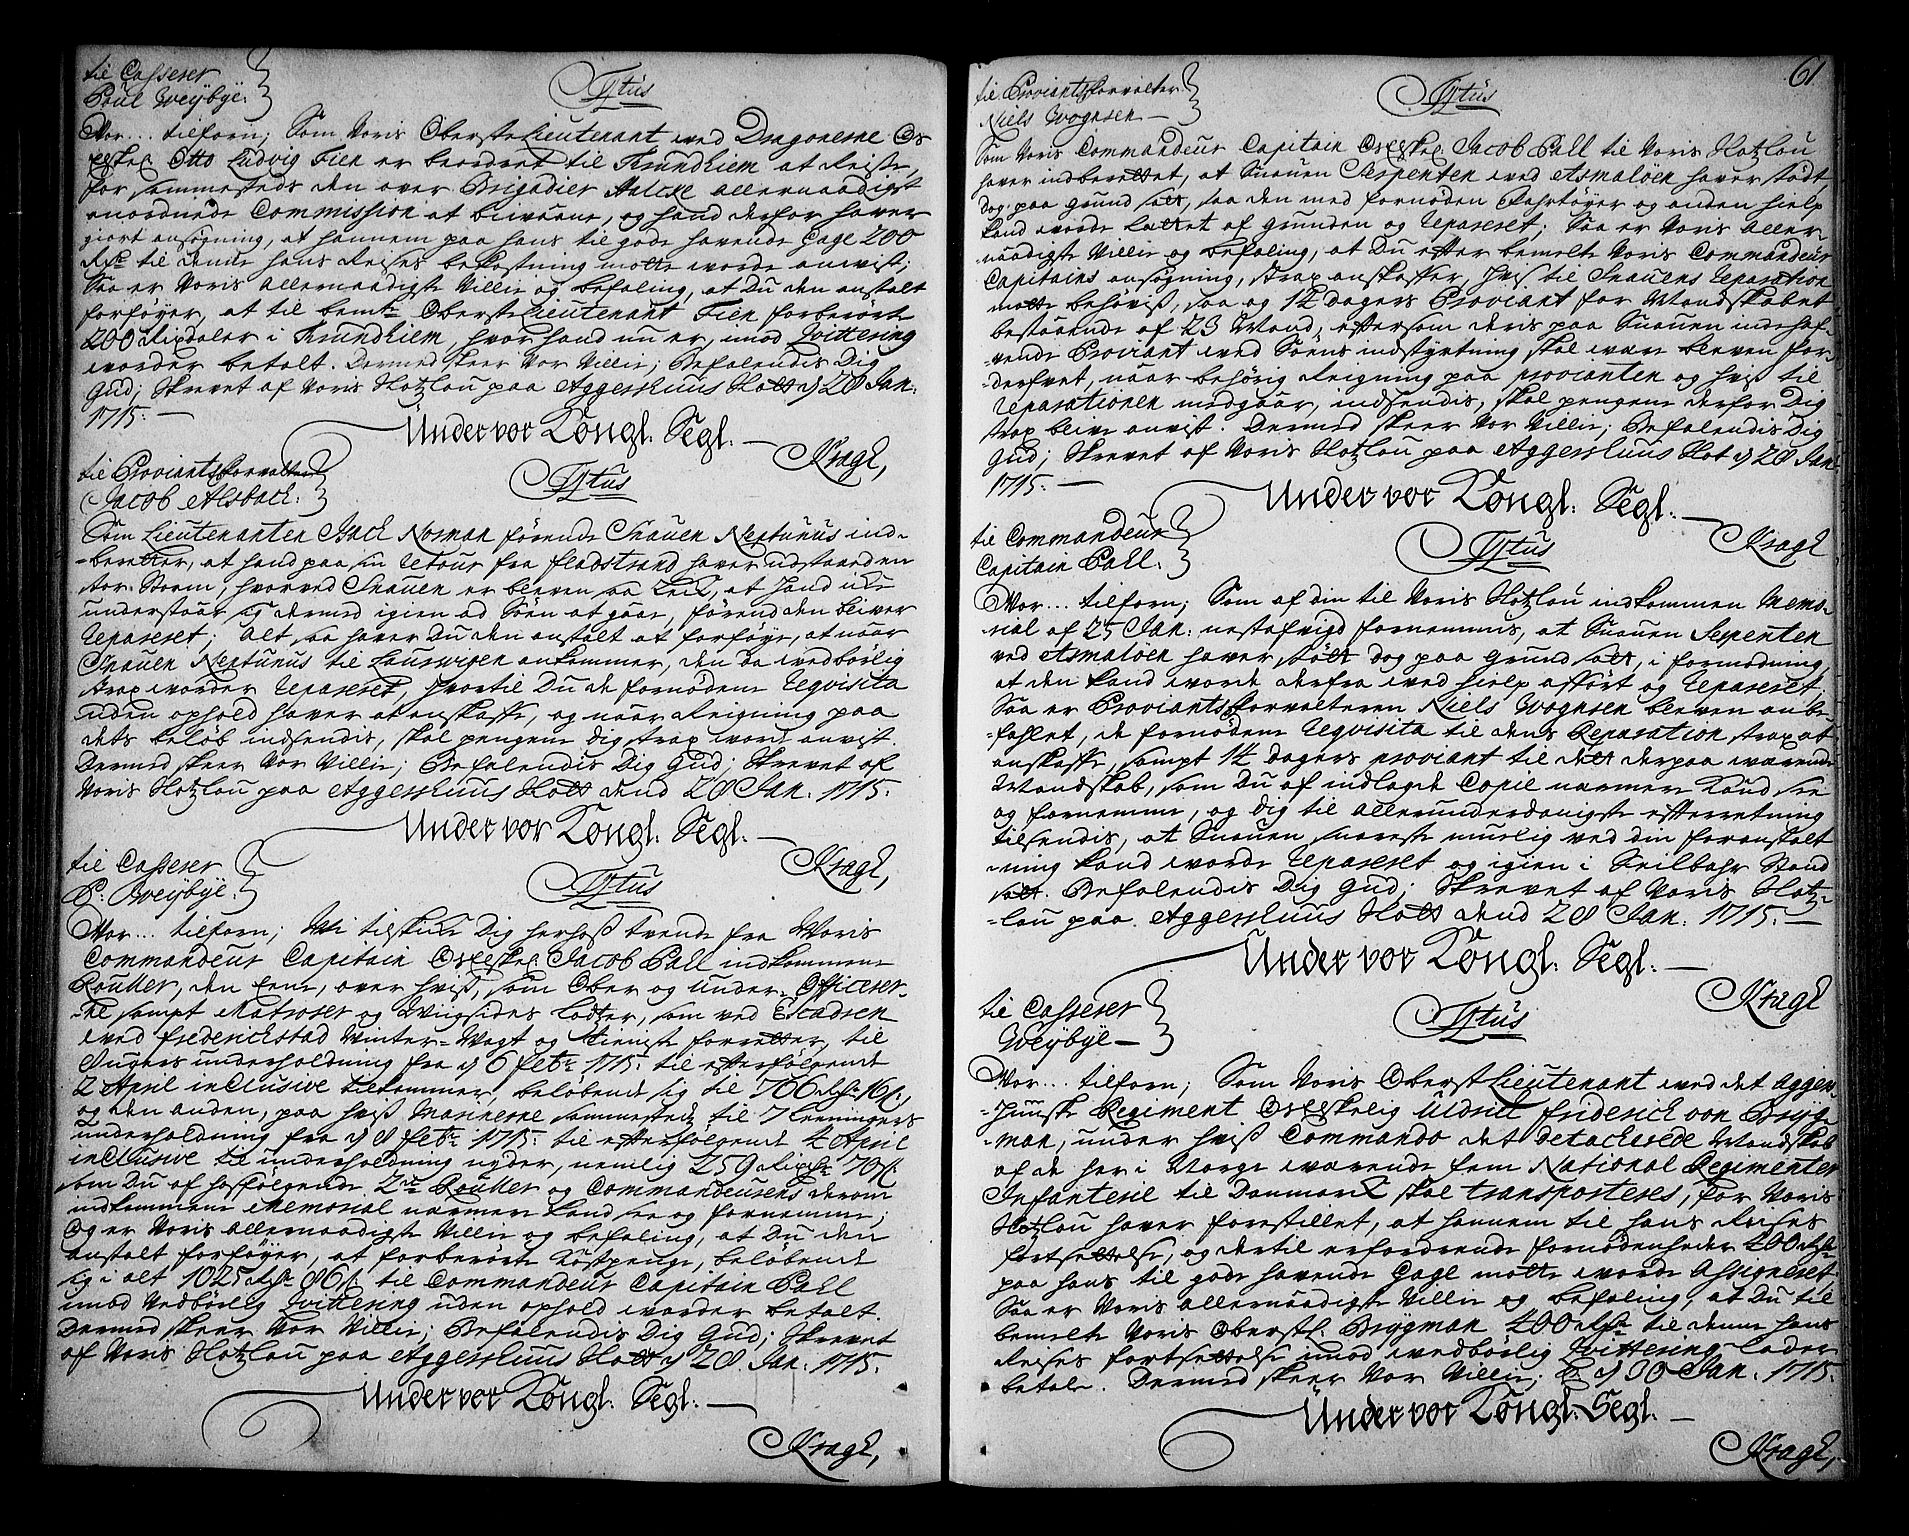 til Casserer
Poul Weÿbye.
Tÿtus
Vor... tilforn; Som Voris Oberste Lieutenant ved Dragonerne Os
elskel. Otto Ludvig Fien er beordret til Trundhiem at Reise,
for sammesteds den over Brigadier allernaadigst
anordnede Commission at biivaane, og hand derfor hafver
giort ansøgning, at hannem paa hans til gode hafvende Gage 200
Rdr til denne hans Reises bekostning motte worde anvist;
Saa er Voris allernaadigste Villie og befaling, at Du den anstalt
forføyer, at til bemte Oberste Lieutenant Fien forberørte
200 Rixdaler i Trundhiem, hvor hand nu er, imod Qvittering
worder betalt. Dermed skeer Vor Villie; Befalendis Dig
Gud; Skrevet af Voris Slotzlou paa Aggershuus Slott d 28 Jan:
1715.
Under vor Kongl. Segl.
Kragh,
til Proviantzforvalter
Jacob Alsback.
Tÿtus
Som Lieutenanten Isack Norman førende Snauen Neptunus ind-
-beretter, at hand paa sin Retour fra Fladstrand hafver udstaaeden
stor Storm, hvorved Snauen er bleven saa Leck, at Hand icke
understaar sig dermed igien ad Søen at gaae, førend den bliver
Repareret; Alt saa hafver Du den anstalt at forføye, at naar
Snauen Neptunus til Laurwigen ankommer, den da wedbørlig
strax worder Repareret, hvortil Du de fornødene Reqvisita
uden ophold hafver at anskaffe, og naar Reigning paa
dets beløb indsendis, skal pengene dig strax worde anvist.
Dermed skeer Vor Villie; Befalendis Dig Gud; Skrevet af
Voris Slotzlou paa Aggershuus Slott dend 28 Jan. 1715.
Under vor Kongl. Segl.
Kragh,
til Casserer
P. Weÿbye.
Tÿtus
Vor... tilforn; Wi tilskicke Dig herhoß tvende fra Voris
Commandeur Capitain Os elskel. Jacob Pall indkommene
Roller, den eene, over hviß, som Ober og under Officerer-
-ne sampt Matroser og Wiigsides lodser, som ved Escadren
ved Frederichstad Winter-Wagt og tieniste forretter, til
Augers underholdning fra d 6 Febr. 1715. til efterfølgende
2 April inclusive tilkommer, beløbende sig til 766 Rdr 16 s.,
og den anden, paa hviß Marinerne sammesteds til 7 Lemningers
underholdning fra d 8 Febr. 1715. til efterfølgende 4 April
inclusive til underholdning nyder, nemlig 259 Rixdr 70 s.
som Du af hosfølgende 2de Roller og Commandeurens derom
indkommene Memorial nærmere kand see og fornemme;
Og er Voris allernaadigste Villie og befaling, at Du den
anstalt forføyer, at forberørte Kostpenge, beløbende
sig i alt 1025 Rdr 86 s. til Commandeur Capitain Pall
imod Vedbørlig Qvittering uden ophold worder betalt.
Dermed skeer Vor Villie; Befalendis Dig Gud; Skrevet
af Voris Slotzlou paa Aggershuus Slott d 28 Jan. 1715.
Under vor Kongl. Segl.
Kragh,
61
til Proviantzforvalter
Niels Wognsen
Tÿtus
Som Voris Commandeur Capitain Os elskel. Jacob Pall til Voris Slotzlou
hafver indberettet, at Snauen Serpenten ved Asmaløen hafver stødt,
dog paa grund satt, saa den med fornøden Fartøyer og anden hielp
kand worde lættet af grunden og Repareret; Saa er Voris Aller-
-naadigste Villie og befaling, at Du efter bemelte Voris Commandeur
Capitains ansøgning, strax anskaffer, hviß til Snauens Reparation
motte behøviß, saa og 14 dagers Proviant for Mandskabet
bestaaende af 23 Mand, eftersom deris paa Snauen indehaf-
vende Proviant ved Søens indstyrtning skal være bleven for-
-derfvet, naar behørig Reigning paa provianten og hviß til
Reparationen medgaar, indsendis, skal pengene derfor Dig
strax blive anvist. Dermed skeer Vor Villie; Befalendis Dig
Gud; Skrevet af Voris Slotzlou paa Aggershuus Slot d 28 Jan:
1715.
Under vor Kongl. Segl.
Kragh
til Commandeur
Capitain Pall.
Tÿtus
Vor... tilforn; Som af din til Voris Slotzlou indkommen Memo-
-rial af 25 Jan: nestafvigt fornemmis, at Snauen Serpenten
ved Asmaløen hafver stødt dog paa grund satt, i formodning,
at den kand worde derfra ved hielp afført og Repareret,
Saa er Proviantzforvalteren Niels Wognsen bleven anbe-
-fahlet, de fornødene Reqvisita til dens Reparation strax at
anskaffe, sampt 14 dagers proviant til det derpaa værende
Mandskab, som Du af indlagde Copie nærmere kand see
og fornemme, og dig til allerunderdanigste efterretning
tilsendis, at Snauen snareste muelig ved din foranstalt-
-ning kand worde Repareret og igien i Seilbahr Stand
satt. Befalendis Dig Gud; Skrevet af Voris Slotz-
-lou paa Aggershuus Slott dend 28 Jan. 1715.
Under vor Kongl. Segl.
Kragh
til Casserer
Weÿbye
Tÿtus
Vor... tilforn; Som Voris Oberst Lieutenant ved det Agger-
-huuske Regiment Os elskelig Uldrich Friderich von Bryg-
-man, under hviß Commando det detacherede Mandskab
af de her i Norge værende fem National Regimenter
Infanterie til Danmark skal transporteres, for Voris
Slotzlou hafver forestillet, at hannem til hans Reises
fortsettelse, og dertil erfordrende fornødenheder 400 Rdr
paa hans til gode hafvende Gage motte worde Assigneret
Saa er Voris allernaadigste Villie og befaling, at Du til
bemelte Voris Oberstl. Brygman 400 Rdr til denne hans
Reises fortsettelse imod wedbørlig Qvittering lader
betale. Dermed skeer Vor Villie; d 30 Jan. 1715.
Under vor Kongl. Segl.
Kragh,